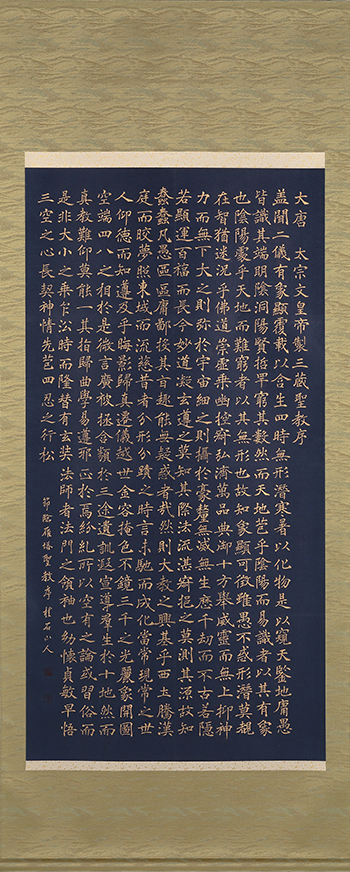 大唐　太宗文皇帝製三藏聖教序
蓋聞二儀有象顯覆載以含生四時無形潛寒暑以化物是以窺天鑒地庸愚
皆識其端明陰洞陽賢哲罕窮其數然而天地苞乎陰陽而易識者以其有象
也陰陽處乎天地而難窮者以其無形也故知象顯可徵雖愚不惑形潛莫覩
在智猶迷況乎佛道崇虛乘幽控寂弘濟萬品典御十方舉威靈而無上抑神
力而無下大之則彌於宇宙細之則攝於豪釐無滅無生歷千劫而不古若隱
若顯運百福而長今妙道凝玄遵之莫知其際法流湛寂挹之莫測其源故知
蠢蠢凡愚區區庸鄙投其旨趣能無疑惑者哉然則大教之興基乎西土騰漢
庭而皎夢照東域而流慈昔者分形分蹟之時言未馳而成化當常現常之世
人仰德而知遵及乎晦影歸真遷儀越世金容掩色不鏡三千之光麗象開圖
空端四八之相於是微言廣被拯含類於三途遺訓遐宣導羣生於十地然而
真教難仰莫能一其指歸曲學易遵邪正於焉紛糺所以空有之論或習俗而
是非大小之乘乍沿時而隆替有玄奘法師者法門之領袖也幼懷貞敏早悟
三空之心長契神情先苞四忍之行松
節臨雁塔聖教序 桂石山人